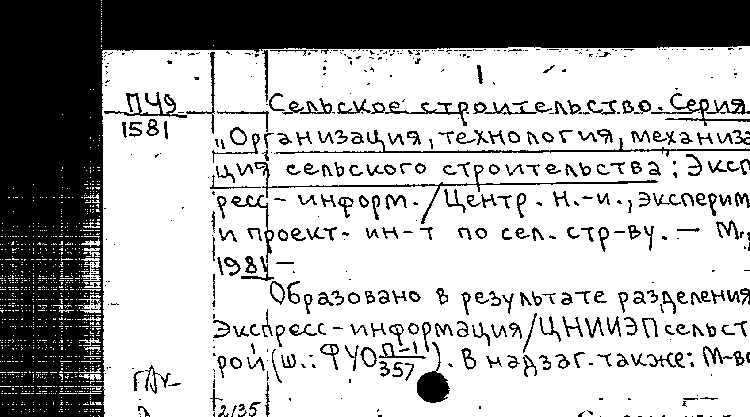 1
П49
1581
Сельское строительство. Серия
„Организация, технология, механиза
ция сельского строительства": Эксп
ресс-информ. / Центр. н.-и., эксперим
и проект. ин-т по сел. стр-ву. — М.,
1981 —
Образовано в результате разделения
Экспресс-информация / ЦНИИЭПсельст
рой (ш.: ФУО П-11/357). В надзаг. также: М-во
2135